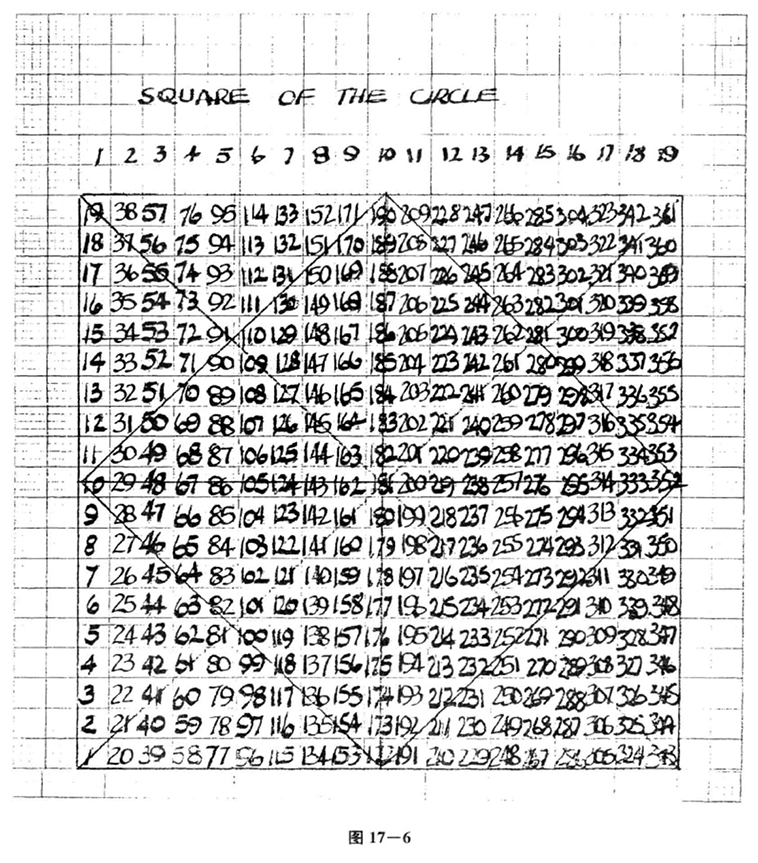 SQUARE OF THE CIRCLE
1 2 3 4 5 6 7 8 9 10 11 12 13 14 15 16 17 18 19
19 38 57 76 95 114 133 152 171 190 209 228 247 266 285 304 323 342 361
18 37 56 75 94 113 132 151 170 189 208 227 246 265 284 303 322 341 360
17 36 55 74 93 112 131 150 169 188 207 226 245 264 283 302 321 340 359
16 35 54 73 92 111 130 149 168 187 206 225 244 263 282 301 320 339 358
15 34 53 72 91 110 129 148 167 186 205 224 243 262 281 300 319 338 357
14 33 52 71 90 109 128 147 166 185 204 223 242 261 280 299 318 337 356
13 32 51 70 89 108 127 146 165 184 203 222 241 260 279 298 317 336 355
12 31 50 69 88 107 126 145 164 183 202 221 240 259 278 297 316 335 354
11 30 49 68 87 106 125 144 163 182 201 220 239 258 277 296 315 334 353
10 29 48 67 86 105 124 143 162 181 200 219 238 257 276 295 314 333 352
9 28 47 66 85 104 123 142 161 180 199 218 237 256 275 294 313 332 351
8 27 46 65 84 103 122 141 160 179 198 217 236 255 274 293 312 331 350
7 26 45 64 83 102 121 140 159 178 197 216 235 254 273 292 311 330 349
6 25 44 63 82 101 120 139 158 177 196 215 234 253 272 291 310 329 348
5 24 43 62 81 100 119 138 157 176 195 214 233 252 271 290 309 328 347
4 23 42 61 80 99 118 137 156 175 194 213 232 251 270 289 308 327 346
3 22 41 60 79 98 117 136 155 174 193 212 231 250 269 288 307 326 345
2 21 40 59 78 97 116 135 154 173 192 211 230 249 268 287 306 325 344
1 20 39 58 77 96 115 134 153 172 191 210 229 248 267 286 305 324 343
图 17－6